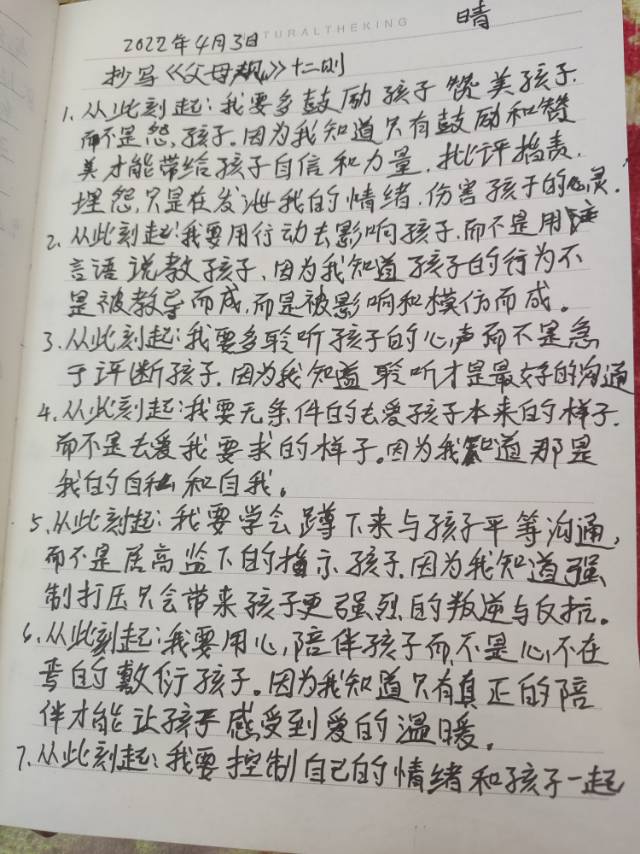 TURALTHEKING
2022年4月3日 晴
抄写《父母规》十二则
1. 从此刻起:我要多鼓励孩子赞美孩子.
而不是怨,孩子.因为我知道只有鼓励和赞
美才能带给孩子自信和力量.批评指责.
埋怨,只是在发泄我的情绪,伤害孩子的心灵.
2. 从此刻起:我要用行动去影响孩子.而不是用
言语说教孩子、因为我知道孩子的行为不
是被教导而成,而是被影响和模仿而成。
3. 从此刻起:我要多聆听孩子的心声而不是急
于评断孩子.因为我知道聆听才是最好的沟通
4. 从此刻起:我要无条件的去爱孩子本来的样子.
而不是去爱我要求的样子。因为我知道那是
我的自私和自我。
5. 从此刻起:我要学会蹲下来与孩子平等沟通,
而不是居高监下的指示孩子.因为我知道强
制打压只会带来孩子更强烈的叛逆与反抗。
6. 从此刻起:我要用心,陪伴孩子而不是心不在
焉的敷衍孩子。因为我知道只有真正的陪
伴才能让孩子感受到爱的温暖。
7. 从此刻起:我要控制自己的情绪和孩子一起